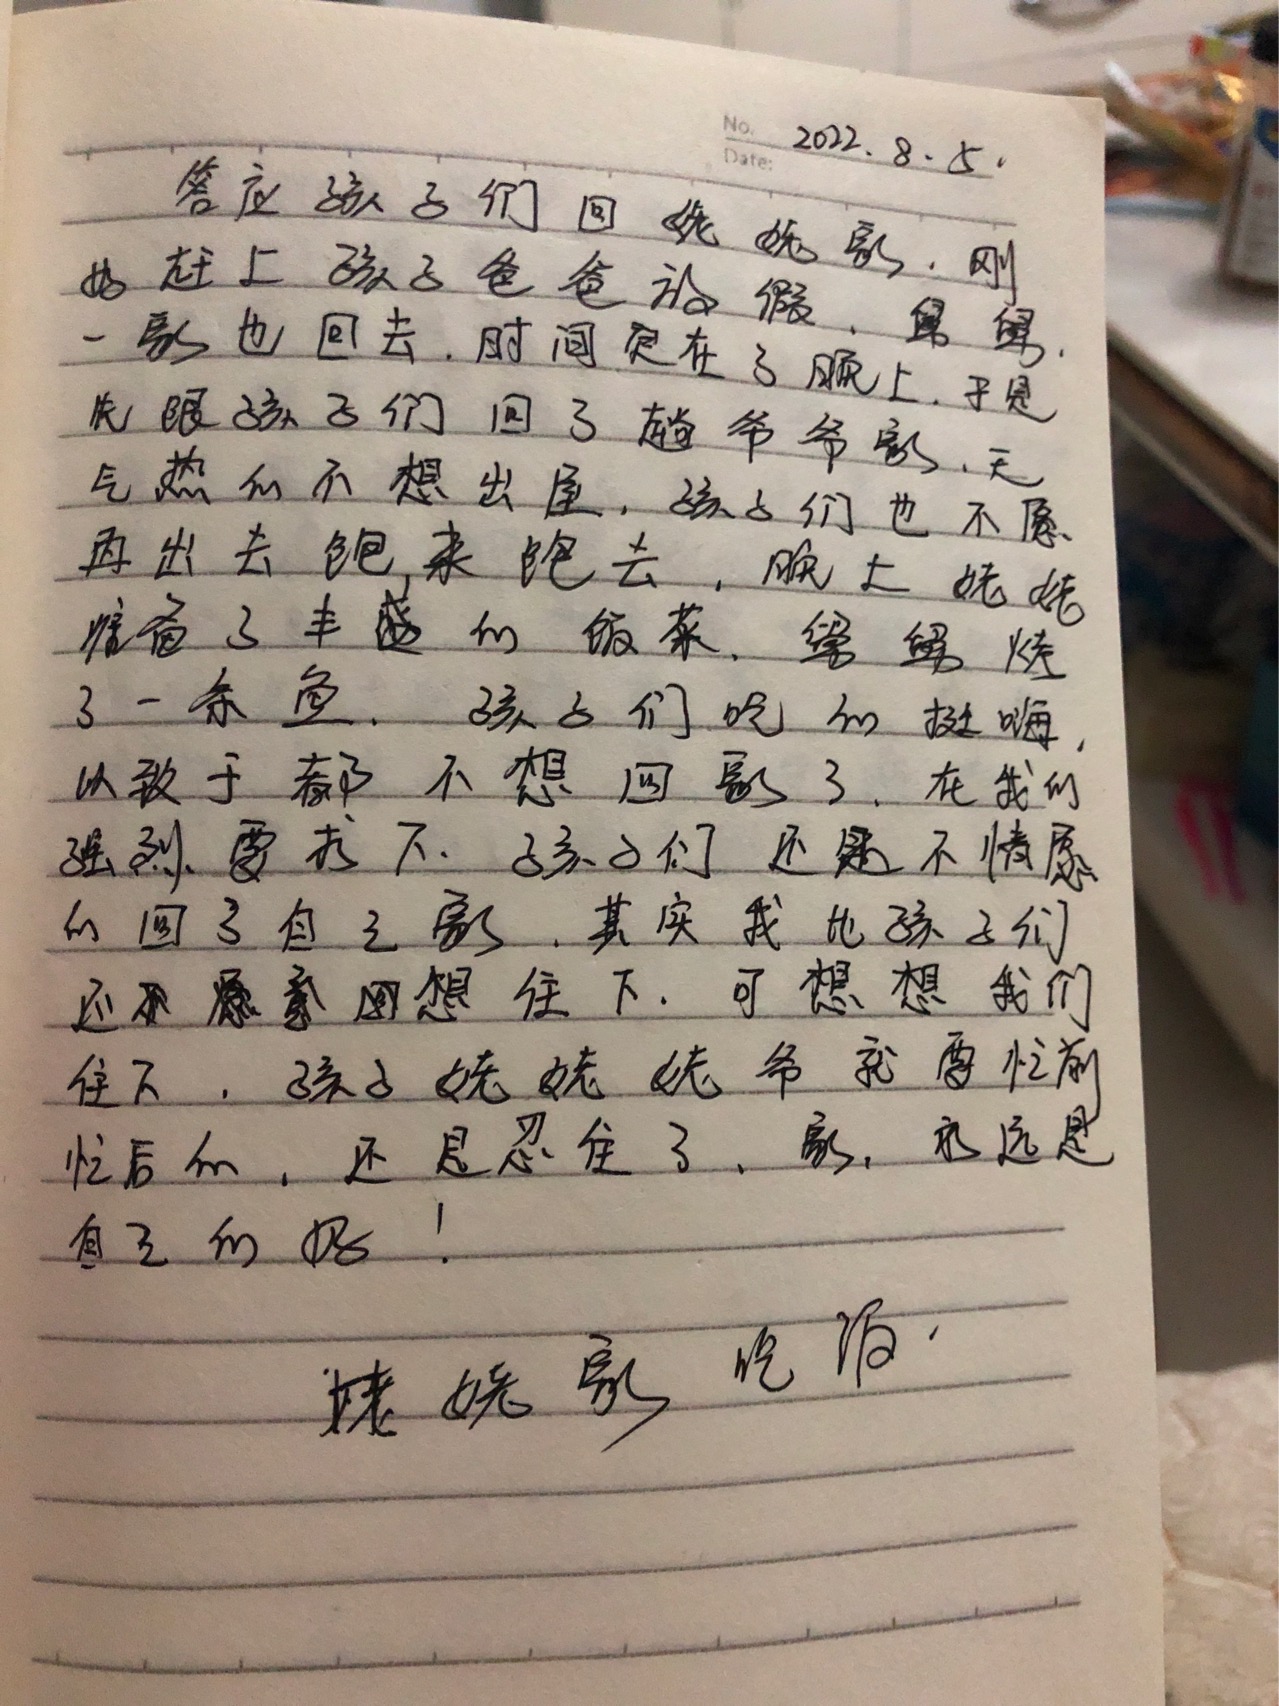 No. 2022.8.5.
Date:
答应孩子们回姥姥家.刚
好赶上孩子爸爸放假,舅舅
一家也回去.时间定在了晚上.于是
先跟孩子们回了趟爷爷家.天
气热的不想出屋,孩子们也不愿
再出去跑来跑去,晚上姥姥
准备了丰盛的饭菜.舅舅烧
了一条鱼.孩子们吃的挺嗨,
以致于都不想回家了.在我们
强烈要求下.孩子们还是不情愿
的回了自己家.其实我比孩子们
还想住下.可想想我们
住下,孩子姥姥姥爷就要忙前
忙后的,还是忍住了.家,永远是
自己的好!
姥姥家吃饭.